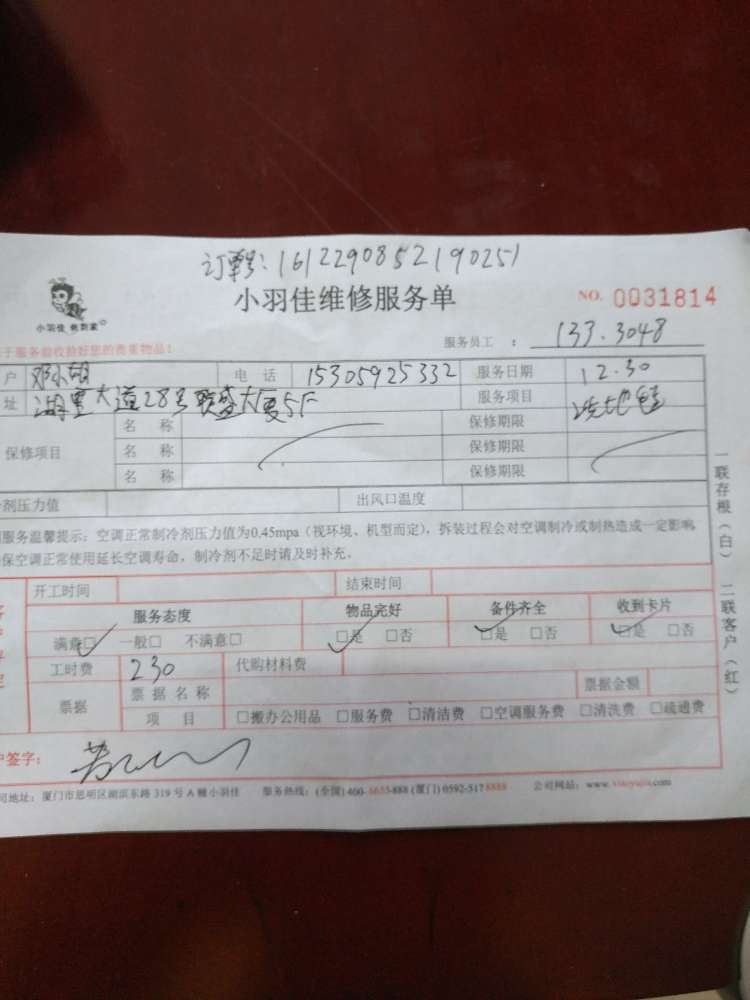 订单号:161229085219025 1
小羽佳维修服务单 NO. 0031814
小羽佳 服务员工 : 133.3048
于服务前收拾好您的贵重物品!
户 邓小姐 电 话 15305925332 服务日期 12.30
址 湖里大道28号联盛大厦5F 服务项目 洗地毯
保修项目 名 称 保修期限
名 称 保修期限
名 称 保修期限
剂压力值 出风口温度
服务温馨提示:空调正常制冷剂压力值为0.45mpa(视环境、机型而定),拆装过程会对空调制冷或制热造成一定影响
保空调正常使用延长空调寿命,制冷剂不足时请及时补充。
开工时间 结束时间
服务态度 物品完好 备件齐全 收到卡片
满意□ 一般□ 不满意□ □是 □否 □是 □否 □是 □否
工时费 230 代购材料费
票据 票据名称 票据金额
项 目 □搬办公用品 □服务费 □清洁费 □空调服务费 □清洗费 □疏通费
户签字:
司地址:厦门市思明区湖滨东路 319 号 A 幢小羽佳 服务热线:(全国) 400-6655-888 (厦门) 0592-5178888 公司网站:www.xiaoyujia.com
一联存根(白) 二联客户(红)